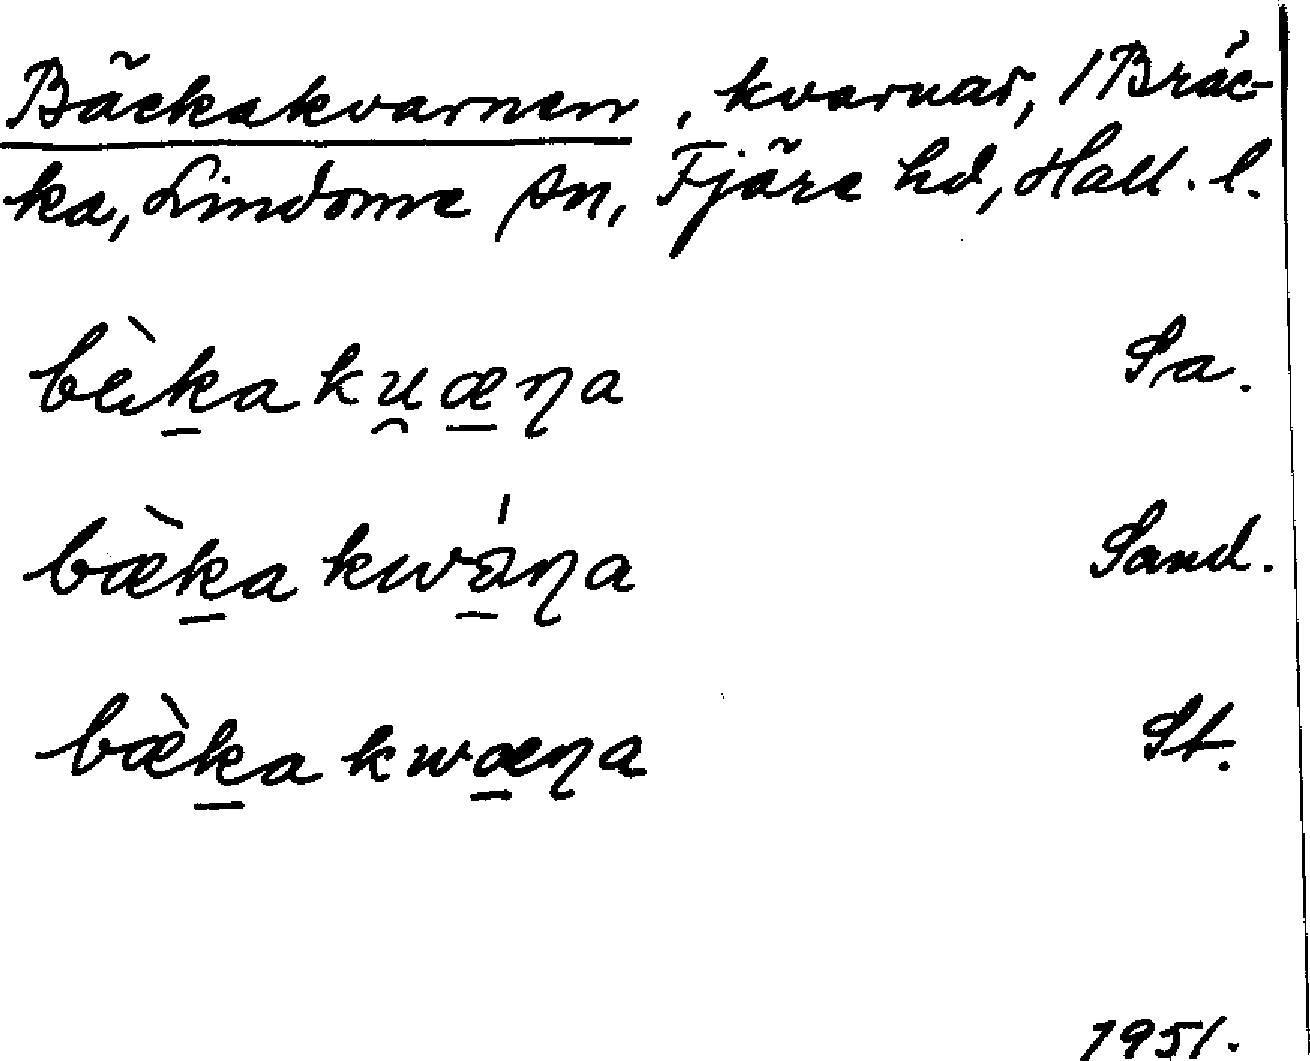 Bäckakvarnen, kvarnar, 1 Bräc-
ka, Lindome sn, Fjäre hd, Hall. l.
bὲka ku̯æɳa Sa.
bæ̀ka kwáɳa Sand.
bæ̀ka kwæɳa St.
1951.